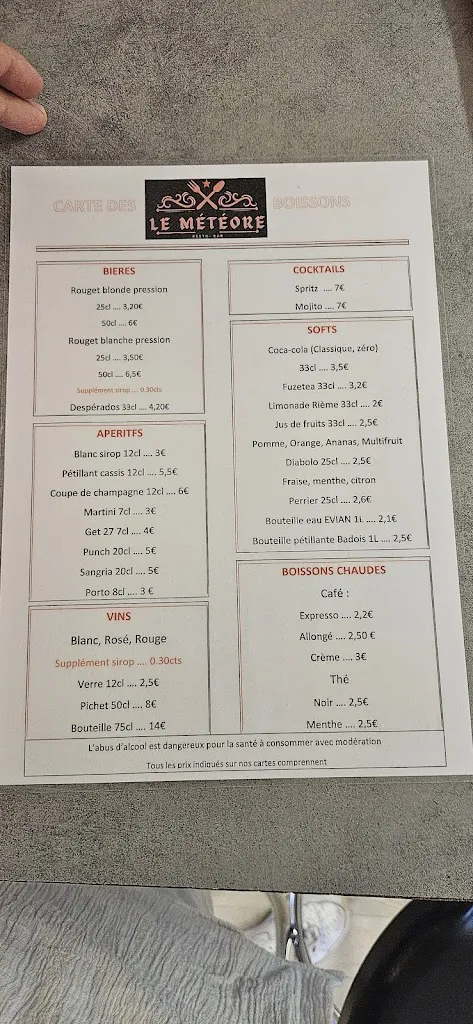 CARTE DES
LE MÉTÉORE
RESTO BAR
BOISSONS
BIERES
Rouget blonde pression
25cl .... 3,20€
50cl .... 6€
Rouget blanche pression
25cl .... 3,50€
50cl .... 6,5€
Supplément sirop ... 0.30cts
Despérados 33cl .... 4,20€
APERITFS
Blanc sirop 12cl .... 3€
Pétillant cassis 12cl .... 5,5€
Coupe de champagne 12cl .... 6€
Martini 7cl .... 3€
Get 27 7cl .... 4€
Punch 20cl .... 5€
Sangria 20cl .... 5€
Porto 8cl .... 3 €
VINS
Blanc, Rosé, Rouge
Supplément sirop .... 0.30cts
Verre 12cl .... 2,5€
Pichet 50cl .... 8€
Bouteille 75cl .... 14€
COCKTAILS
Spritz .... 7€
Mojito .... 7€
SOFTS
Coca-cola (Classique, zéro)
33cl .... 3,5€
Fuzetea 33cl .... 3,2€
Limonade Rième 33cl .... 2€
Jus de fruits 33cl .... 2,5€
Pomme, Orange, Ananas, Multifruit
Diabolo 25cl .... 2,5€
Fraise, menthe, citron
Perrier 25cl .... 2,6€
Bouteille eau EVIAN 1L .... 2,1€
Bouteille pétillante Badois 1L .... 2,5€
BOISSONS CHAUDES
Café :
Expresso .... 2,2€
Allongé .... 2,50 €
Crème .... 3€
Thé
Noir .... 2,5€
Menthe .... 2,5€
L'abus d'alcool est dangereux pour la santé à consommer avec modération
Tous les prix indiqués sur nos cartes comprennent